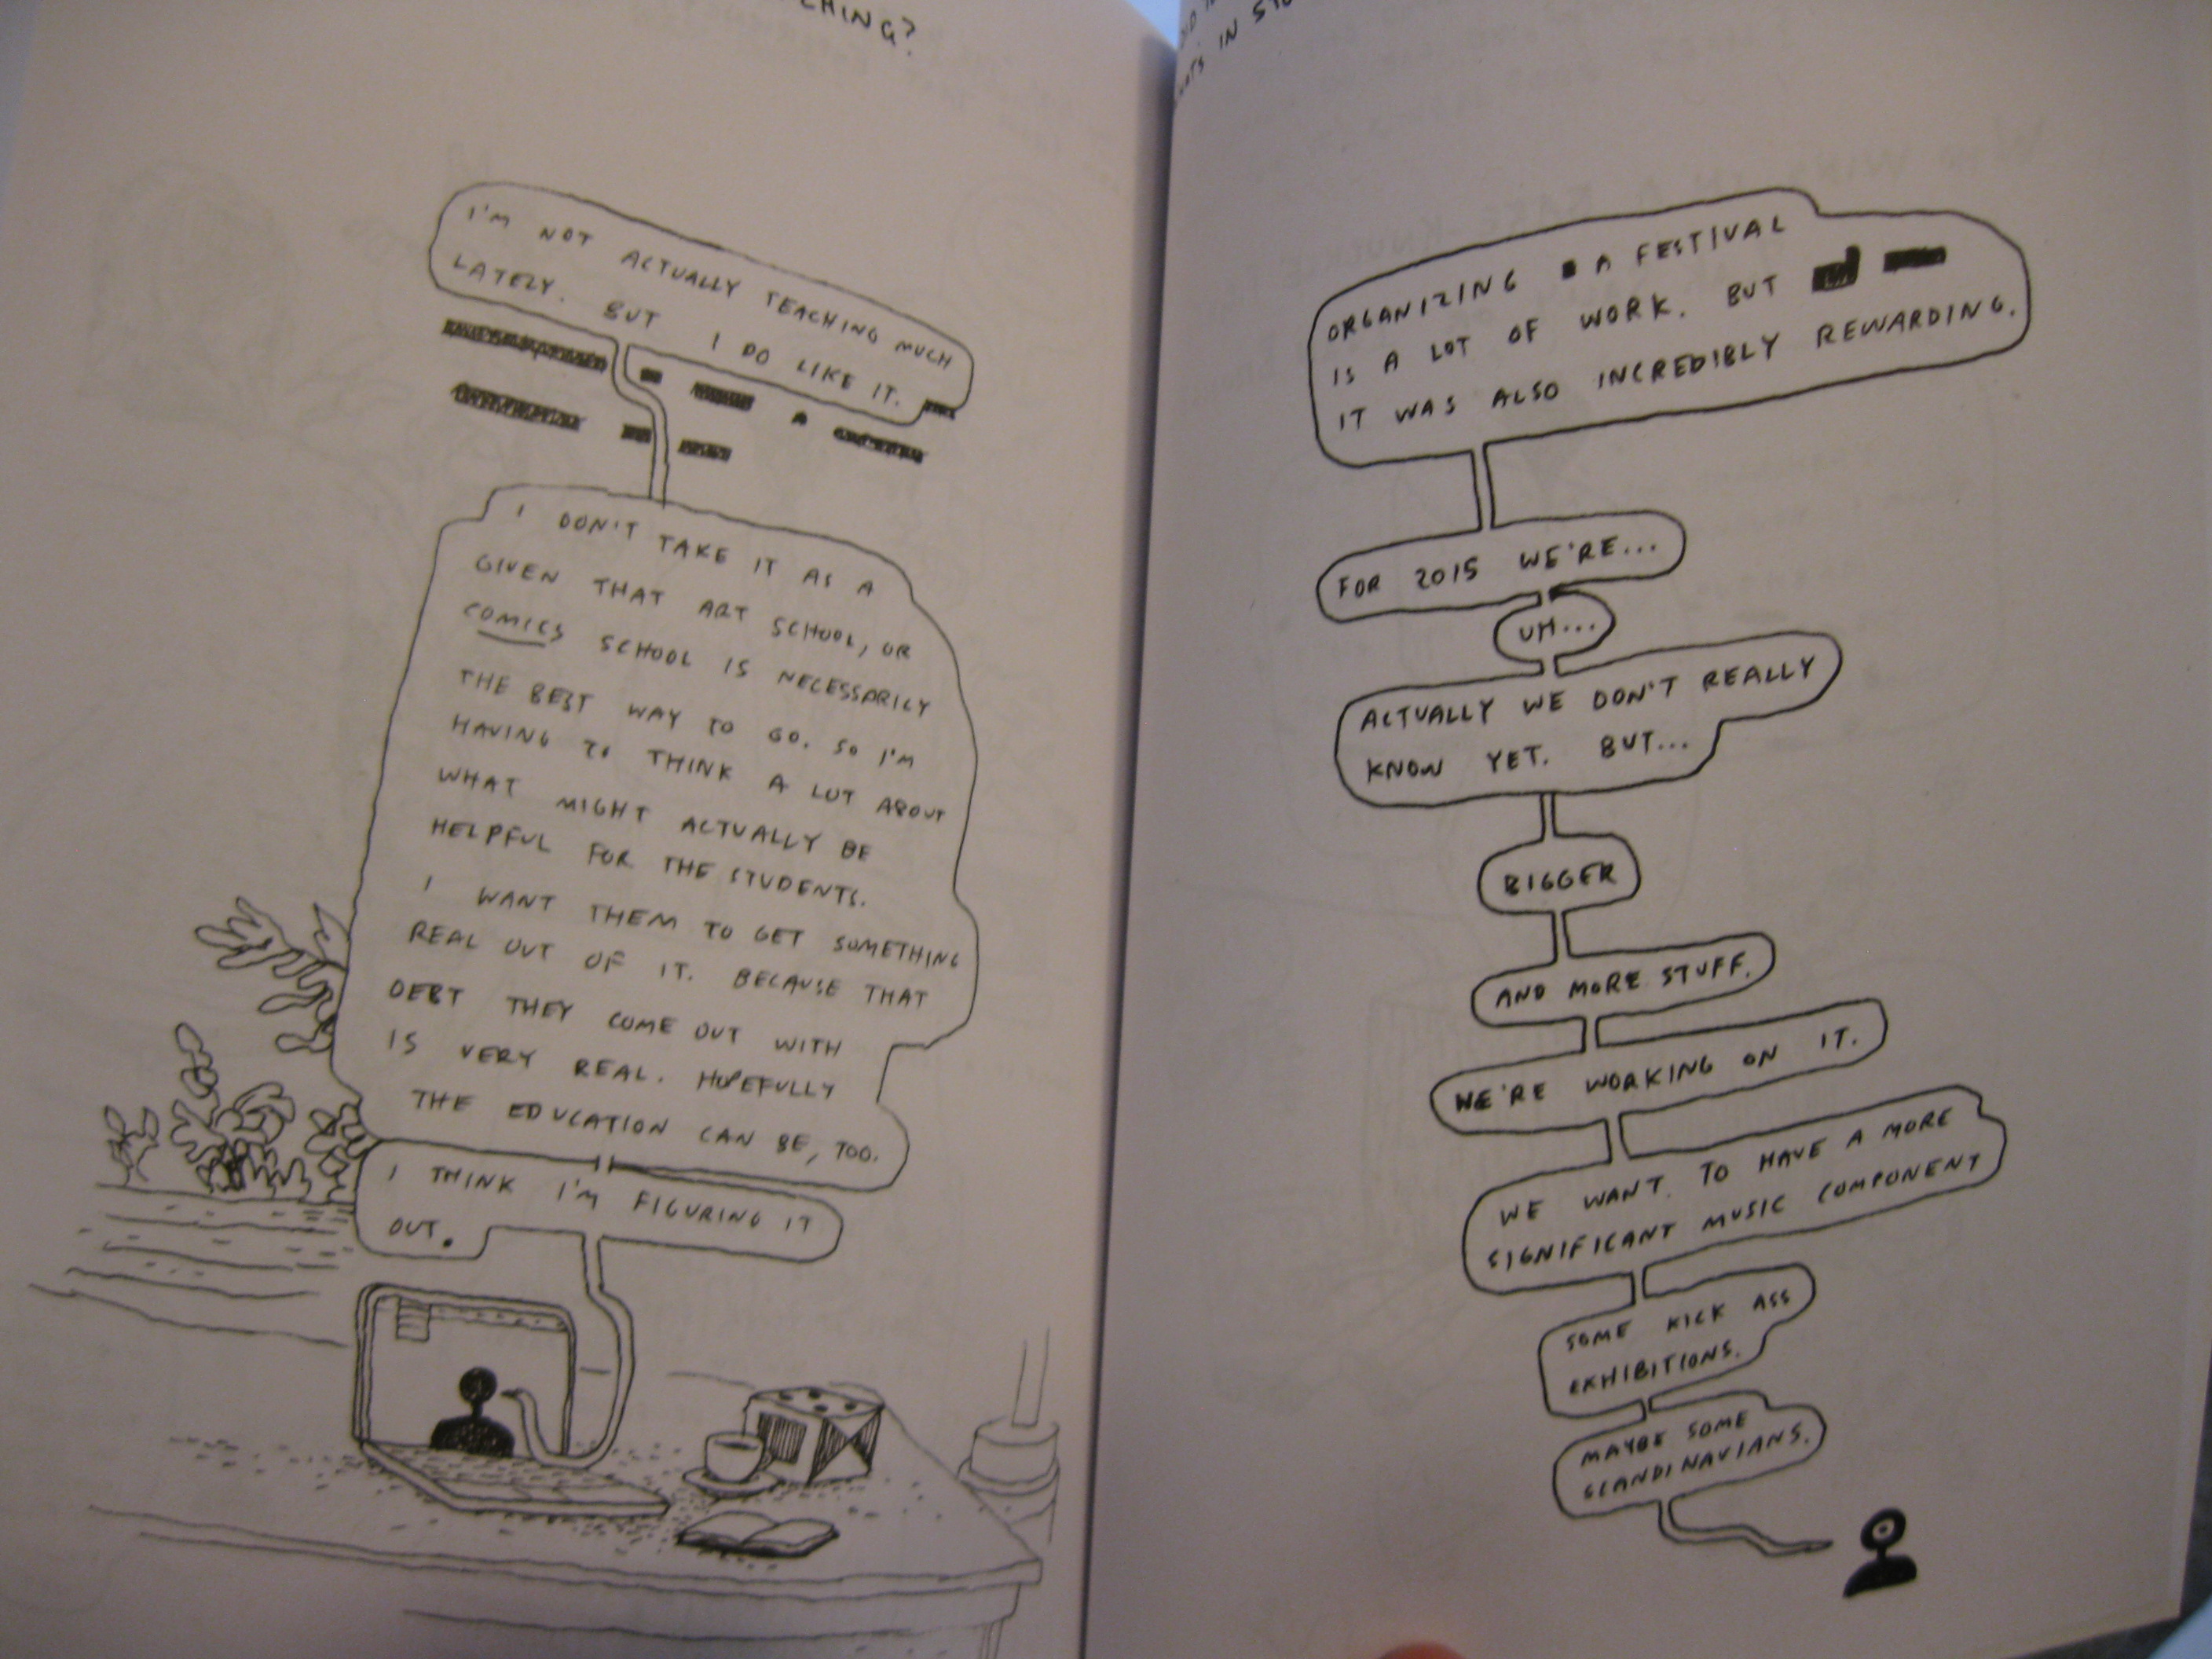 I'M NOT ACTUALLY TEACHING MUCH
LATELY. BUT I DO LIKE IT.
I DON'T TAKE IT AS A
GIVEN THAT ART SCHOOL, OR
COMICS SCHOOL IS NECESSARILY
THE BEST WAY TO GO. SO I'M
HAVING TO THINK A LOT ABOUT
WHAT MIGHT ACTUALLY BE
HELPFUL FOR THE STUDENTS.
I WANT THEM TO GET SOMETHING
REAL OUT OF IT. BECAUSE THAT
DEBT THEY COME OUT WITH
IS VERY REAL. HOPEFULLY
THE EDUCATION CAN BE, TOO.
I THINK I'M FIGURING IT
OUT.
IN
ORGANIZING A FESTIVAL
IS A LOT OF WORK. BUT
IT WAS ALSO INCREDIBLY REWARDING.
FOR 2015 WE'RE...
UH...
ACTUALLY WE DON'T REALLY
KNOW YET. BUT...
BIGGER
AND MORE STUFF.
WE'RE WORKING ON IT.
WE WANT TO HAVE A MORE
SIGNIFICANT MUSIC COMPONENT
SOME KICK ASS
EXHIBITIONS.
MAYBE SOME
SCANDINAVIANS.